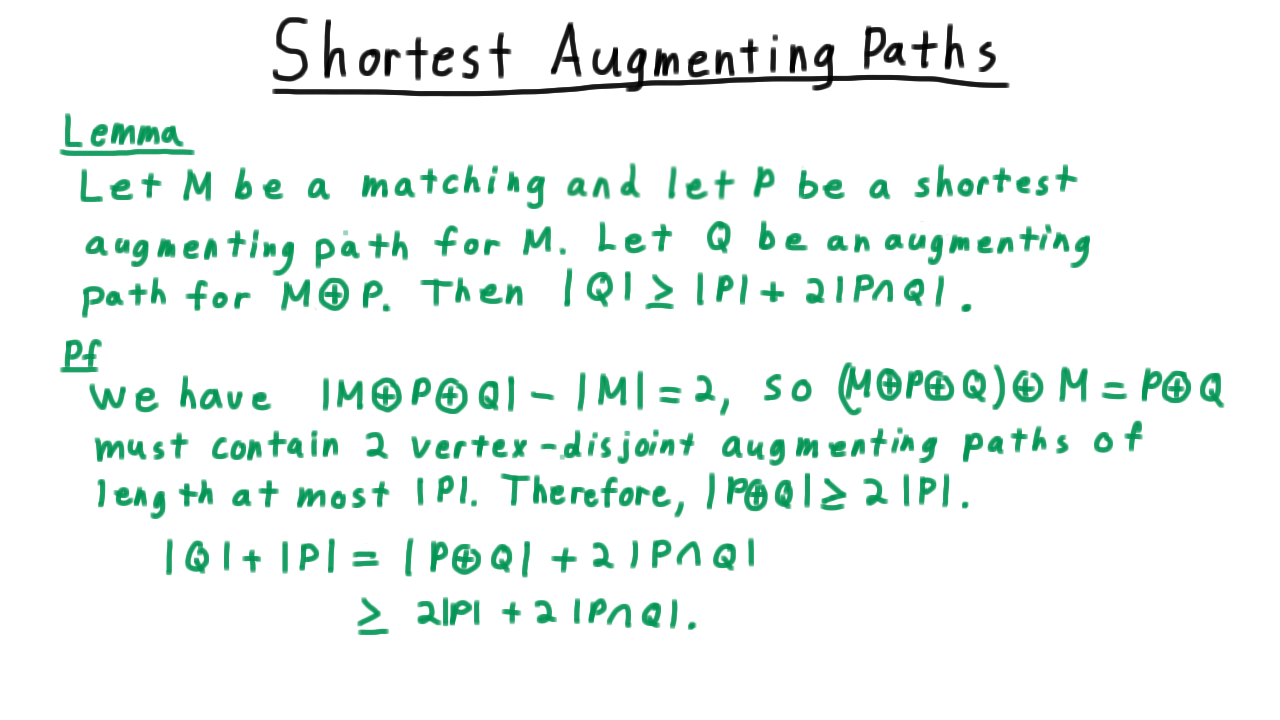 Shortest Augmenting Paths
Lemma
Let M be a matching and let P be a shortest
augmenting path for M. Let Q be an augmenting
path for M⊕P. Then |Q| ≥ |P| + 2|P∩Q|.
Pf
We have |M⊕P⊕Q| - |M| = 2, so (M⊕P⊕Q)⊕M = P⊕Q
must contain 2 vertex-disjoint augmenting paths of
length at most |P|. Therefore, |P⊕Q| ≥ 2|P|.
|Q| + |P| = |P⊕Q| + 2|P∩Q|
≥ 2|P| + 2|P∩Q|.